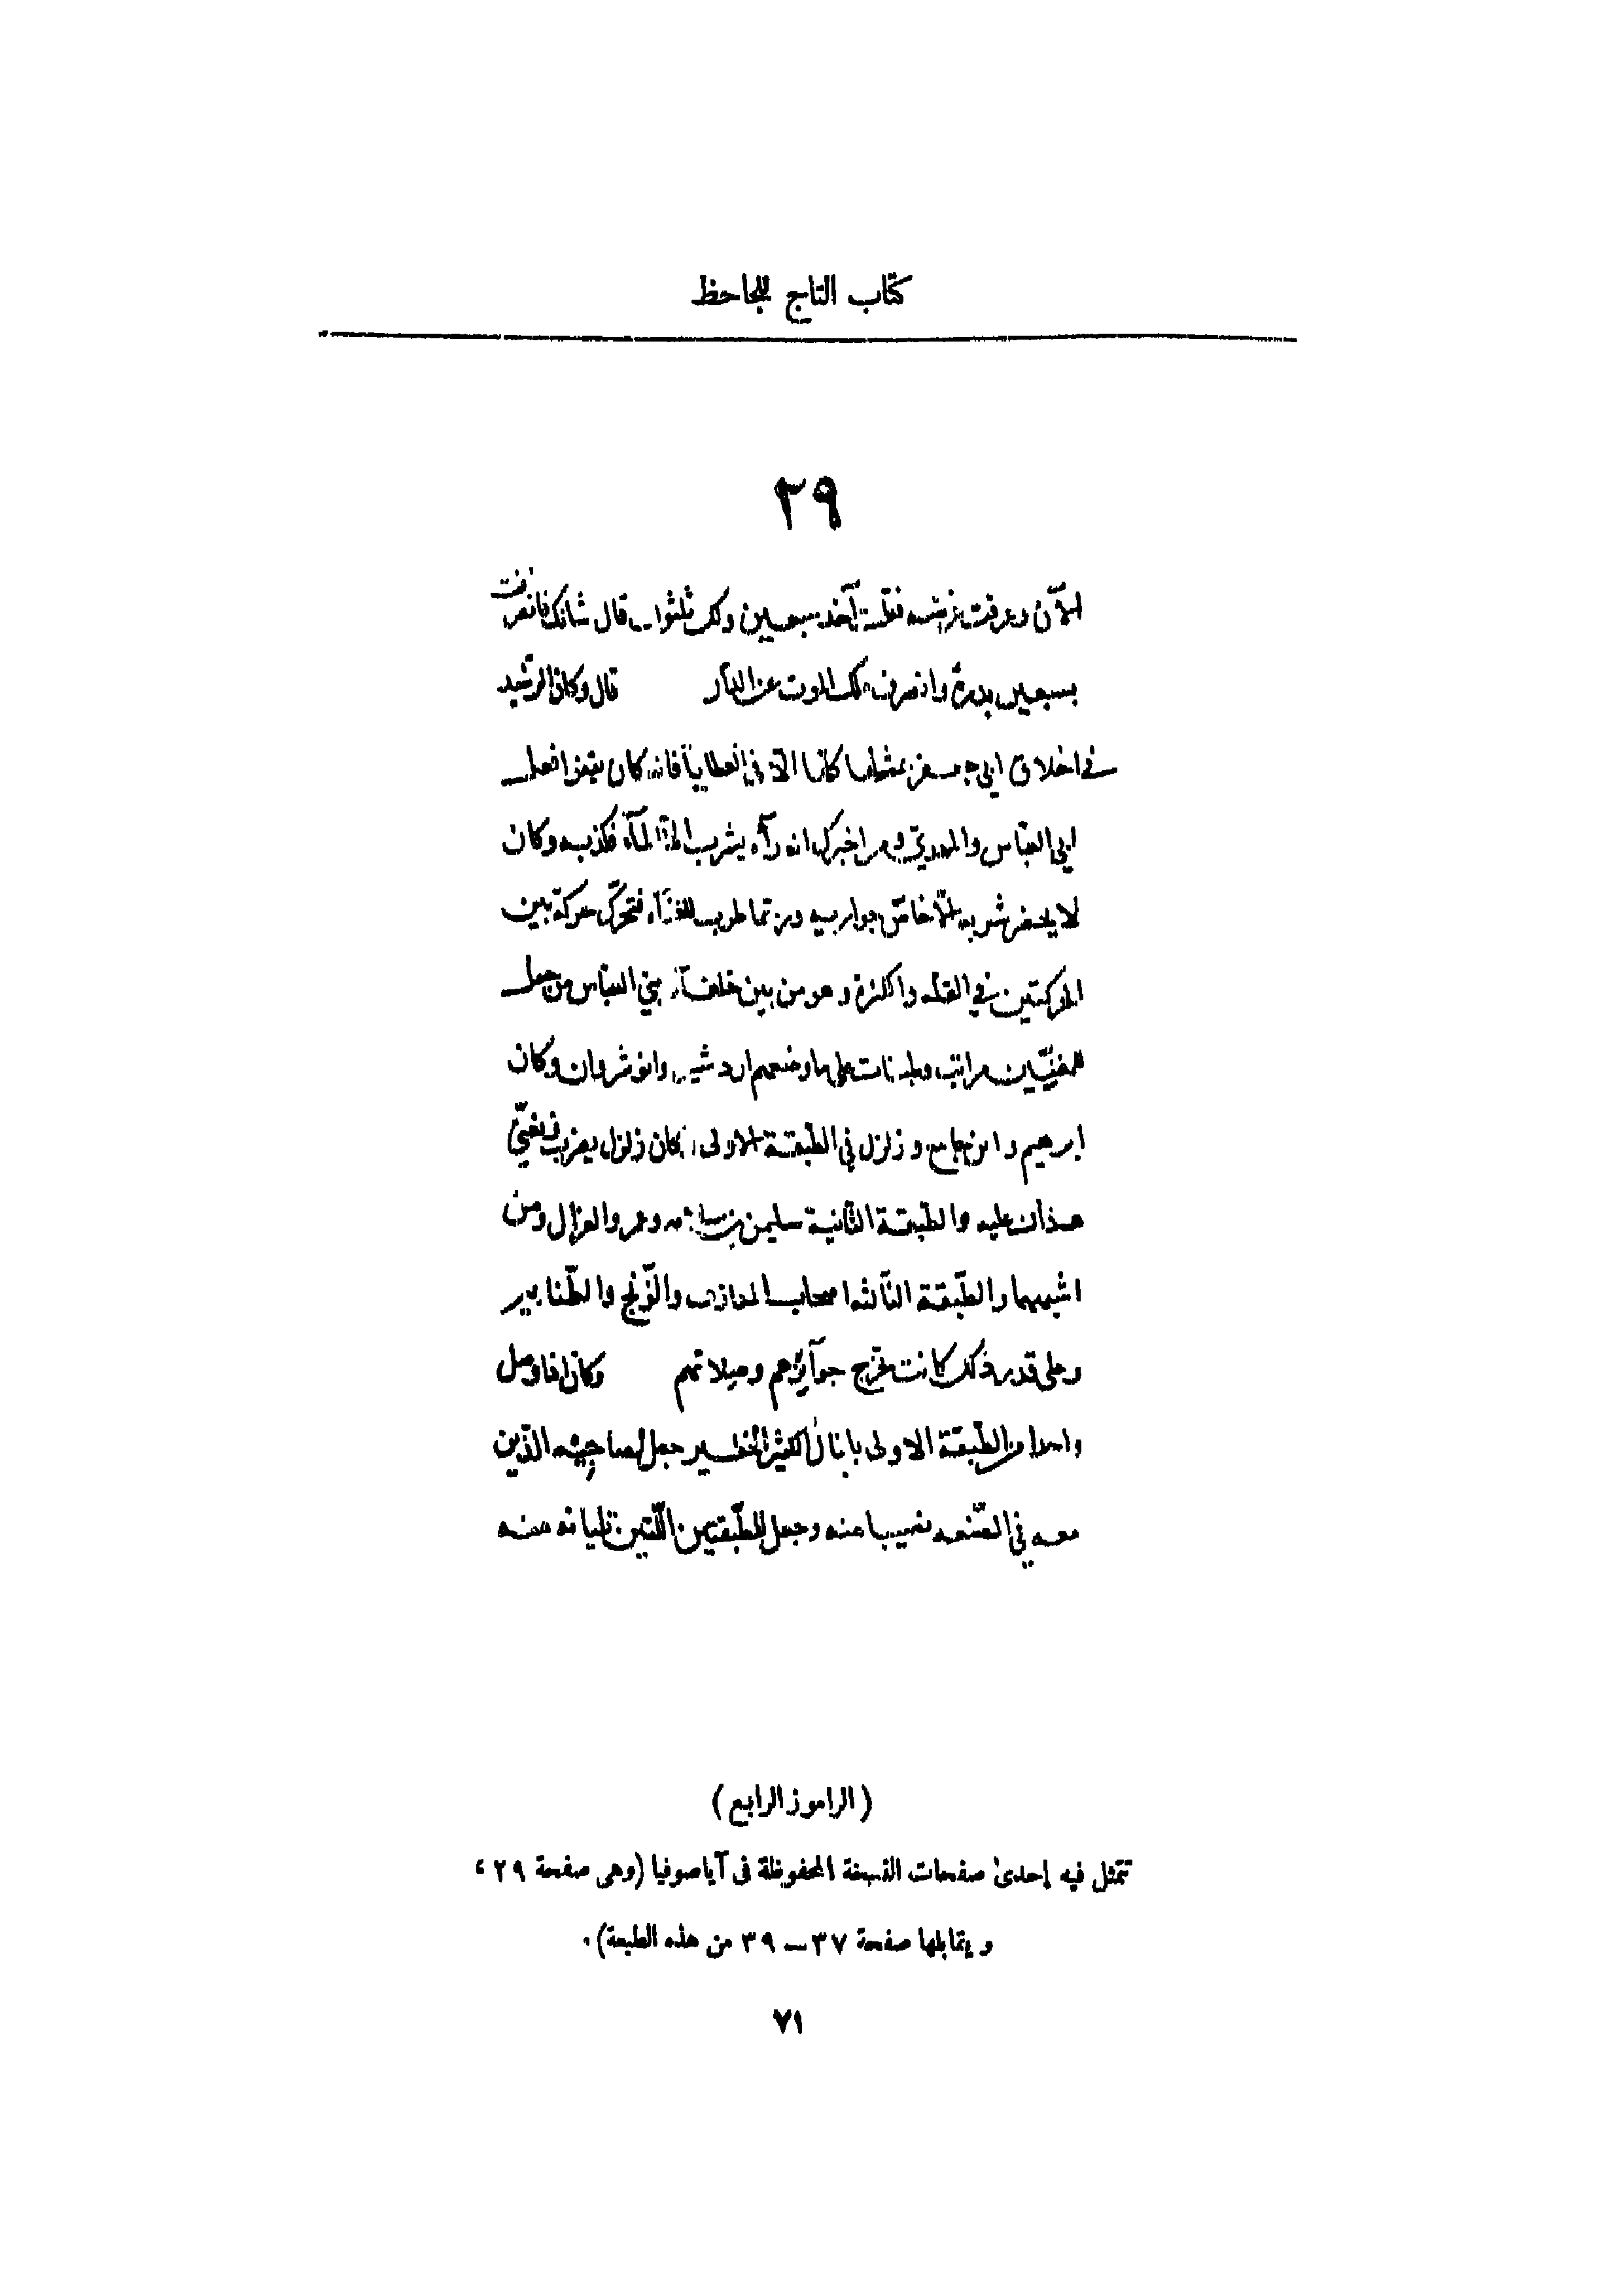 كتاب التاج للجاحظ
٢٩
الآن وعرفت غرضه فقلت آخذ سبعين ولك ثلثون قال شانك فانصرفت
بسبعين بدرة وانصرف ملك الموت عن الدار قال وكان الرشيد
في اخلاق ابي جعفر يمتثلها كلها الا في العطايا فانه كان يقفو افعل
ابي العباس والمهدي ومن اخبرك انه رآه يشرب الا الماء فكذبه وكان
لا يحضر شربه الا خاص جواريه وربما طرب للغناء فتحرك حركة بين
الحركتين في القلة والكثرة وهو من بين خلفاء بني العباس من جعل
للمغنيين مراتب وطبقات على ما وضعهم اردشير وانوشروان وكان
ابرهيم وابن جامع وزلزل في الطبقة الاولى وكان زلزل يضرب ويغني
هذان عليه والطبقة الثانية سليمن بن وعمرو الغزال ومن
اشبههما والطبقة الثالثه اصحاب المعازف والونج والطنابير
وعلى قدر ذلك كانت تخرج جوآيزهم وصلاتهم وكان اذا وصل
واحدا من الطبقة الاولى بالمال الكثير الخطير جعل لصاحبيه الذين
معه في الصنعه نصيبا منه وجعل للطبقتين اللتين تليانه منه
(الراموز الرابع)
تتمثل فيه إحدى صفحات النسخة المحفوظة في آياصوفيا (وهي صفحة ٢٩ ،
ويقابلها صفحة ٣٧ــ٣٩ من هذه الطبعة).
٧١